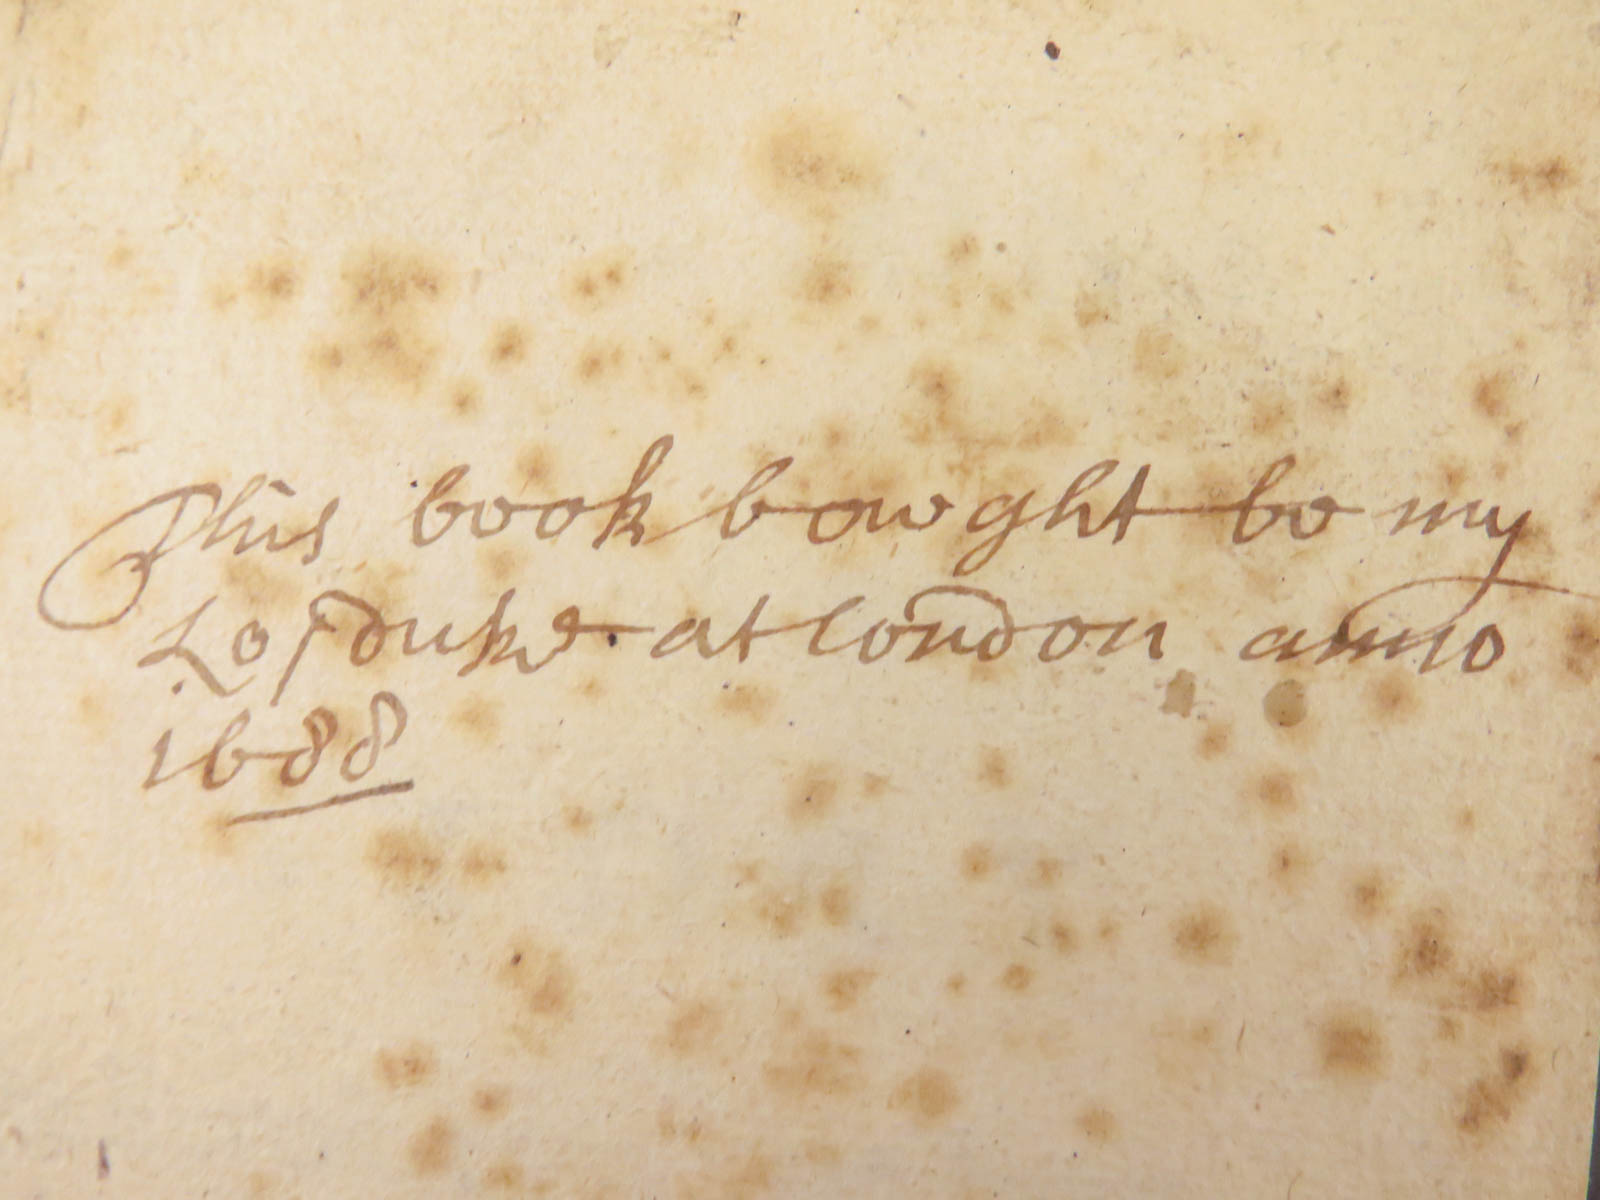 This book bowght be my
Lo/ duke at london anno
1688